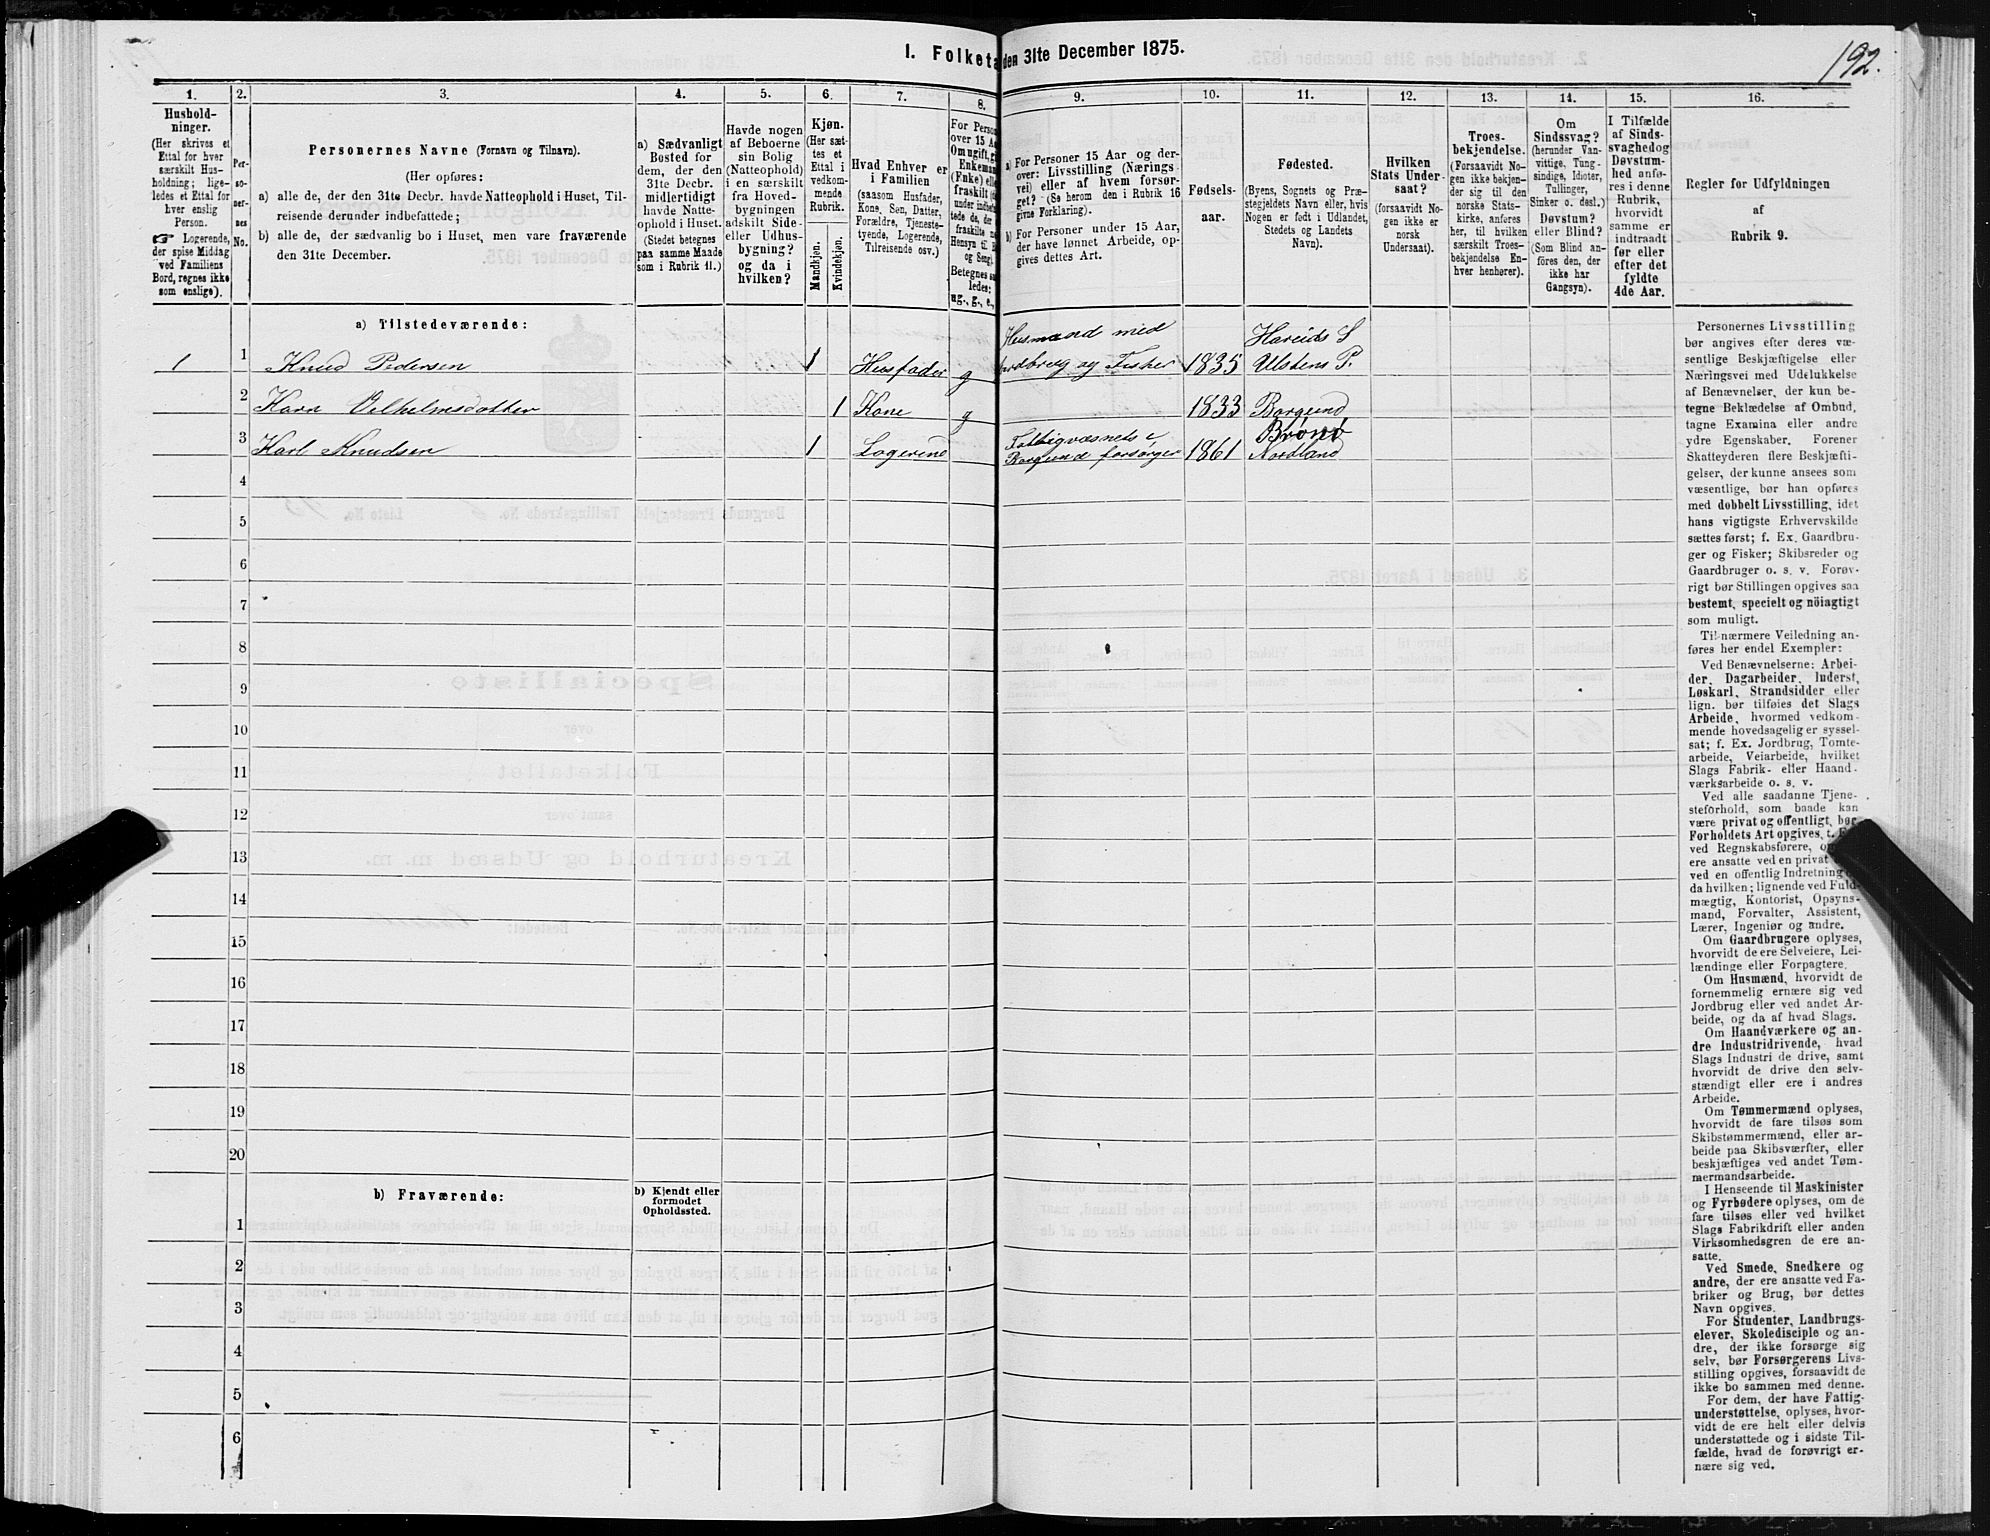 I. Folketa den 31te December 1875.
192.
1.
2.
3.
4.
5.
6.
7.
8.
9.
10.
11.
12.
13.
14.
15.
16.
Hushold-
ninger.
(Her skrives et
Ettal for hver
særskilt Hus-
holdning; lige-
ledes et Ettal for
hver enslig
Person.
☞ Logerende,
der spise Middag
ved Familiens
Bord, regnes ikke
som enslige).
Per-
so-
ner-
nes
No.
Personernes Navne (Fornavn og Tilnavn).
(Her opføres:
a) alle de, der den 31te Decbr. havde Natteophold i Huset, Til-
reisende derunder indbefattede;
b) alle de, der sædvanlig bo i Huset, men vare fraværende
den 31te December.
a) Sædvanligt
Bosted for
dem, der den
31te Decbr.
midlertidigt
havde Natte-
ophold i Huset.
(Stedet betegnes
paa samme Maade
som i Rubrik 11.)
Havde nogen
af Beboerne
sin Bolig
(Natteophold)
i en særskilt
fra Hoved-
bygningen
adskilt Side-
eller Udhus-
bygning?
og da i
hvilken?
Kjøn.
(Her sæt-
tes et
Ettal i
vedkom-
mende
Rubrik.
Mandkjøn.
Kvindekjøn.
Hvad Enhver er
i Familien
(saasom Husfader,
Kone, Søn, Datter,
Forældre, Tjeneste-
tyende, Logerende,
Tilreisende osv.)
For Person
over 15 Aa
Om ugift, gi
Enkeman
(Enke) elle
fraskilt
under indbefat
tede de, der
fraskilte
Hensyn til
og Seng).
Betegnes saa
ledes:
ug., g., e.,
a) For Personer 15 Aar og der-
over: Livsstilling (Nærings-
vei) eller af hvem forsør-
get? (Se herom den i Rubrik 16
givne Forklaring).
b) For Personer under 15 Aar,
der have lønnet Arbeide, op-
gives dettes Art.
Fødsels-
aar.
Fødested.
(Byens, Sognets og Præ-
stegjeldets Navn eller, hvis
Nogen er født i Udlandet,
Stedets og Landets
Navn).
Hvilken
Stats Under-
saat?
(forsaavidt No-
gen ikke er
norsk
Undersaat).
Troes-
bekjendelse.
(Forsaavidt No-
gen ikke bekjen-
der sig til den
norske Stats-
kirke, anføres
her, til hvilken
særskilt Troes-
bekjendelse En-
hver henhører).
Om
Sindssvag?
(herunder Van-
vittige, Tung-
sindige, Idioter,
Tullinger,
Sinker o. desl.)
Døvstum?
eller Blind?
(Som Blind an-
føres den, der
ikke har
Gangsyn).
I Tilfælde
af Sinds-
svaghed og
Døvstum-
hed anfø-
res i denne
Rubrik,
hvorvidt
samme er
indtraadt
før eller
efter det
fyldte
4de Aar.
Regler for Udfyldningen
af
Rubrik 9.
a) Tilstedeværende:
1 1 Knud Pedersen 1 Husfader g Husmand med
Jordbrug og Fisker 1835 Hareids S
Ulstens P.
2 Karn Vilhelmsdatter 1 Kone g 1833 Borgund
3 Karl Knudsen 1 Logerend Fattigvæsnets i
Borgund forsørger 1861 Brønø
Nordland
4
5
6
7
8
9
10
11
12
13
14
15
16
17
18
19
20
b) Fraværende:
b) Kjendt eller
formodet
Opholdssted.
1
2
3
4
5
6
Personernes Livsstilling
bør angives efter deres væ-
sentlige Beskjæftigelse eller
Næringsvei med Udelukkelse
af Benævnelser, der kun be-
tegne Beklædelse af Ombud,
tagne Examina eller andre
ydre Egenskaber. Forener
Skatteyderen flere Beskjæfti-
gelser, der kunne ansees som
væsentlige, bør han opføres
med dobbelt Livsstilling, idet
hans vigtigste Erhvervskilde
sættes først; f. Ex. Gaardbru-
ger og Fisker; Skibsreder og
Gaardbruger o. s. v. Forøv-
rigt bør Stillingen opgives saa
bestemt, specielt og nöiagtigt
som muligt.
Til nærmere Veiledning an-
føres her endel Exempler:
Ved Benævnelserne: Arbei-
der, Dagarbeider, Inderst,
Løskarl, Strandsidder eller
lign. bør tilføies det Slags
Arbeide, hvormed vedkom-
mende hovedsagelig er syssel-
sat; f. Ex. Jordbrug, Tomte-
arbeide, Veiarbeide, hvilket
Slags Fabrik- eller Haand-
værksarbeide o. s. v.
Ved alle saadanne Tjene-
steforhold, som baade kan
være privat og offentligt, bør
Forholdets Art opgives, t. E
ved Regnskabsførere, o
ere ansatte ved en privat
ved en offentlig Indretning
da hvilken; lignende ved Fuld-
mægtig, Kontorist, Opsyns-
mand, Forvalter, Assistent,
Lærer, Ingeniør og andre.
Om Gaardbrugere oplyses,
hvorvidt de ere Selveiere, Lei-
lændinge eller Forpagtere.
Om Husmænd, hvorvidt de
fornemmelig ernære sig ved
Jordbrug eller ved andet Ar-
beide, og da af hvad Slags.
Om Haandværkere og an-
dre Industridrivende, hvad
Slags Industri de drive, samt
hvorvidt de drive den selv-
stændigt eller ere i andres
Arbeide.
Om Tømmermænd oplyses,
hvorvidt de fare tilsøs som
Skibstømmermænd, eller ar-
beide paa Skibsværfter, eller
beskjæftiges ved andet Tøm-
mermandsarbeide.
I Henseende til Maskinister
og Fyrbødere oplyses, om de
fare tilsøs eller ved hvilket
Slags Fabrikdrift eller anden
Virksomhedsgren de ere an-
satte.
Ved Smede, Snedkere og
andre, der ere ansatte ved Fa-
briker og Brug, bør dettes
Navn opgives.
For Studenter, Landbrugs-
elever, Skoledisciple og an-
dre, der ikke forsørge sig
selv, bør Forsørgerens Livs-
stilling opgives, forsaavidt de
ikke bo sammen med denne.
For dem, der have Fattig-
understøttelse, oplyses, hvor-
vidt de ere helt eller delvis
understøttede og i sidste Til-
fælde, hvad de forøvrigt er-
nære sig ved.